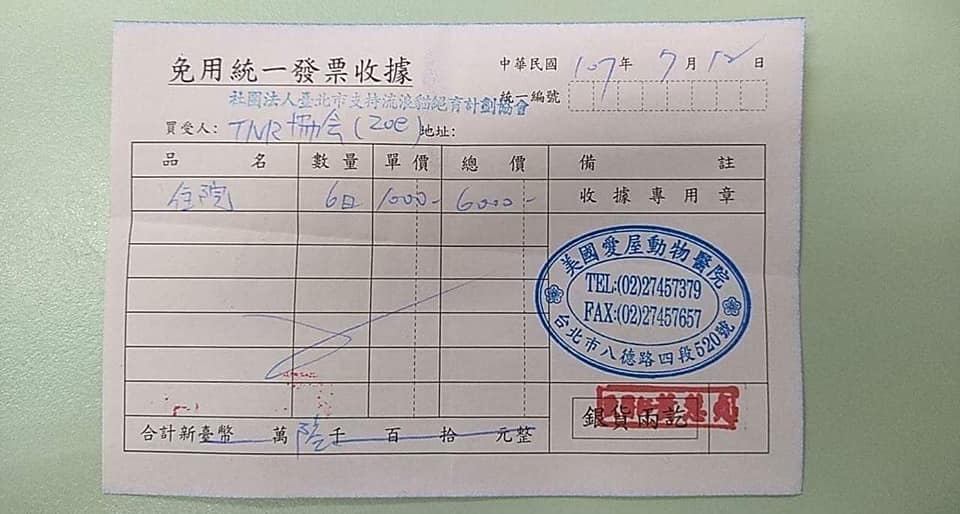 免用統一發票收據
中華民國 107 年 7 月 12 日
社團法人臺北市支持流浪貓絕育計劃協會
統一編號
買受人: TNR 協会 (Zoe) 地址:
品名 數量 單價 總價 備註
住院 6日 1000- 6000- 收據專用章
美國愛屋動物醫院
TEL:(02)27457379
FAX:(02)27457657
台北市八德路四段520號
銀貨兩訖
合計新臺幣 萬 陸 千 百 拾 元整